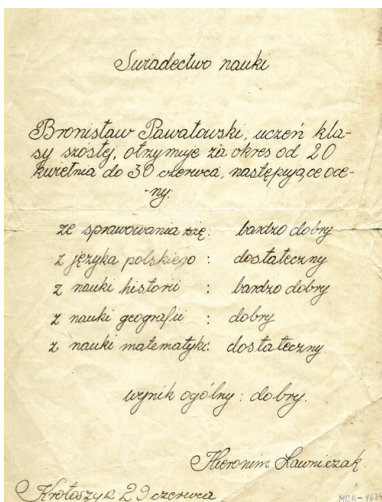 Świadectwo nauki
Bronisław Pawałowski, uczeń kla-
sy szóstej, otrzymuje za okres od 20
kwietnia do 30 czerwca, następujące oce-
-ny:
ze sprawowania się: bardzo dobry
z języka polskiego : dostateczny
z nauki historii : bardzo dobry
z nauki geografii : dobry
z nauki matematyki: dostateczny
wynik ogólny: dobry.
Hieronim Ławniczak
Krotoszyn 29 czerwca